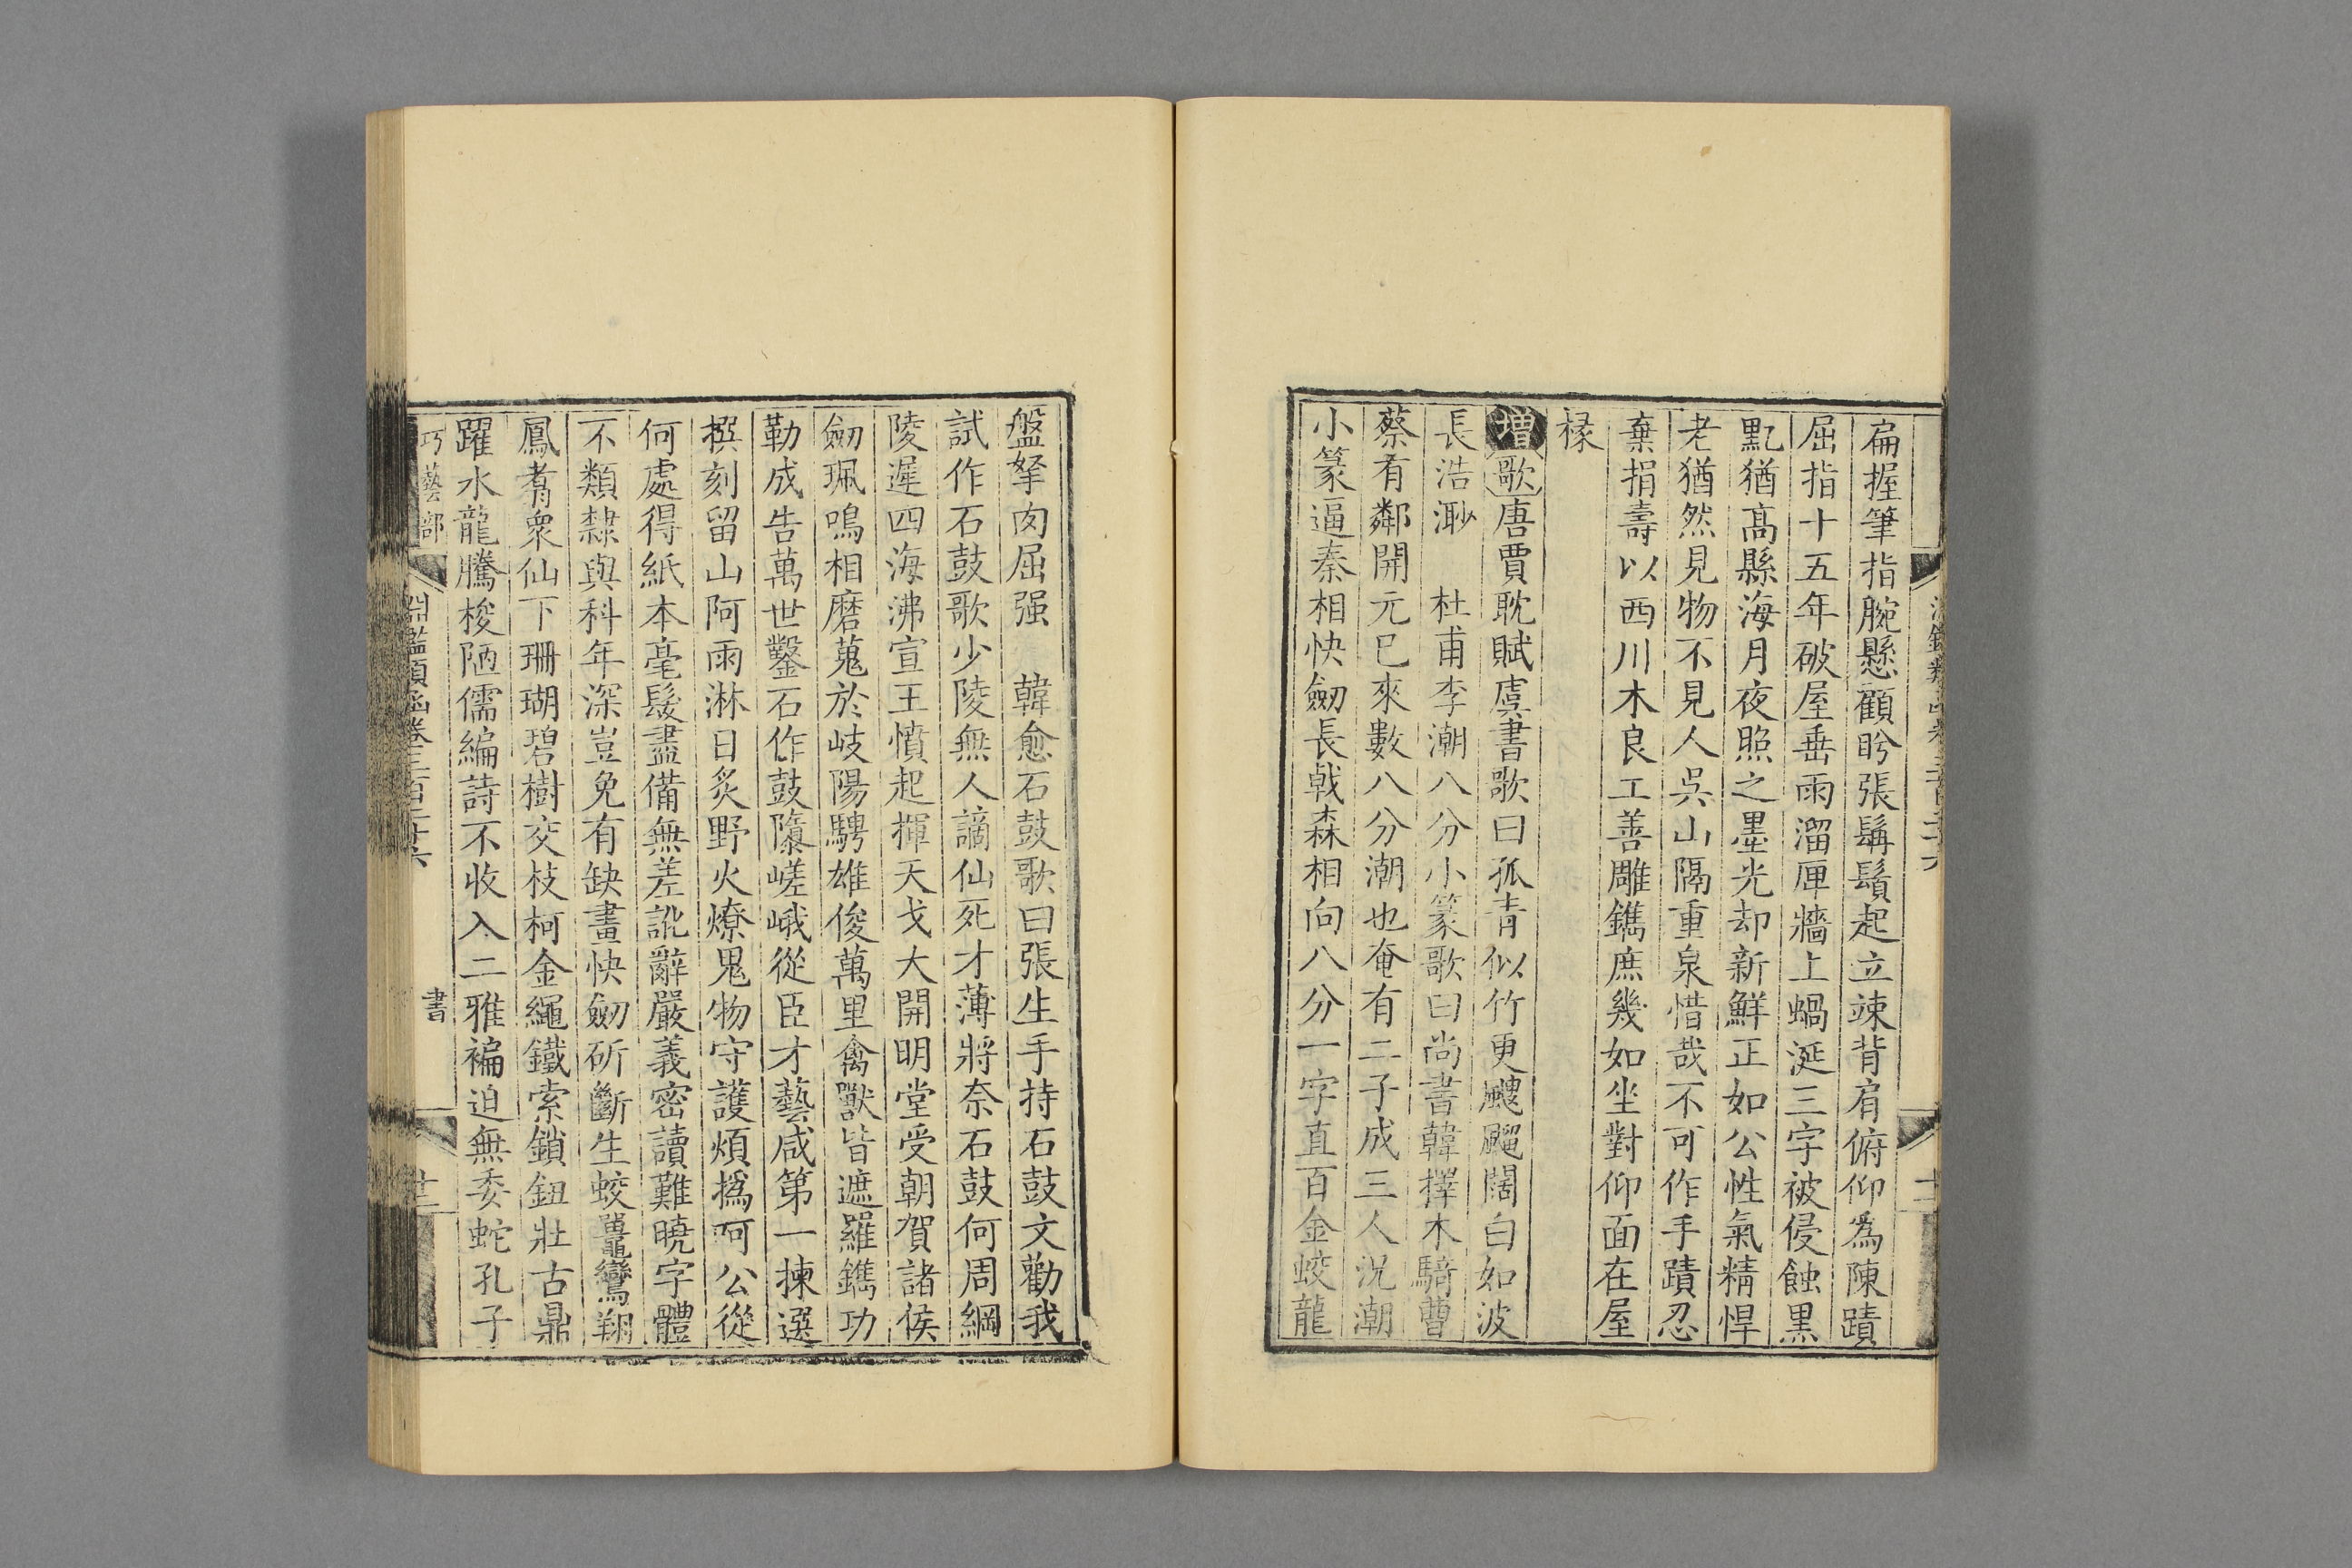 扁握筆指腕懸顧盻張鬅鬚起立竦背肩俯仰爲陳蹟
屈指十五年破屋垂雨溜匣牆上蝸涎三字被侵蝕黒
㸃猶髙縣海月夜照之墨光却新鮮正如公性氣精悍
老猶然見物不見人吳山隔重泉惜哉不可作手蹟忍
棄捐壽以西川木良工善雕鐫庶幾如坐對仰面在屋
椽
增歌唐賈耽賦虞書歌曰孤青似竹更颼飀闊白如波
長浩渺　杜甫李潮八分小篆歌曰尚書韓擇木騎曹
蔡有鄰開元已來數八分潮也奄有二子成三人況潮
小篆逼秦相快劒長戟森相向八分一字直百金蛟龍
盤拏肉屈强　韓愈石鼓歌曰張生手持石鼓文勸我
試作石鼓歌少陵無人謫仙死才薄將奈石鼓何周綱
陵遲四海沸宣王憤起揮天戈大開明堂受朝賀諸侯
劒珮鳴相磨蒐於岐陽騁雄俊萬里禽獸皆遮羅鐫功
勒成告萬世鑿石作鼓隳嵯峨從臣才藝咸第一揀選
撰刻留山阿雨淋日炙野火燎鬼物守護煩撝呵公從
何處得紙本毫髮盡備無差訛辭嚴義密讀難曉字體
不類隸與科年深豈免有缺畫快劒斫斷生蛟鼉鸞翔
鳳翥衆仙下珊瑚碧樹交枝柯金繩鐵索鎖鈕壯古鼎
躍水龍騰梭陋儒編詩不收入二雅褊迫無委蛇孔子
巧藝部　淵鑑類函卷三百二十六　書